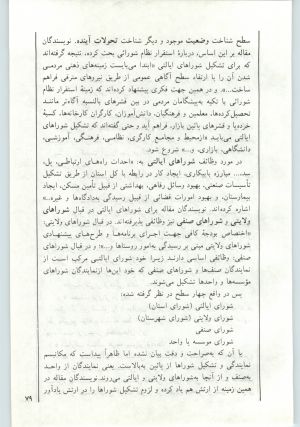 سطح شناخت وضعیت موجود و دیگر شناخت تحولات آینده. نویسندگان
مقاله بر این اساس، دربارهٔ استقرار نظام شورائی بحث کرده، نتیجه گرفته‌اند
که برای تشکیل شوراهای ایالتی «ابتدا می‌بایست زمینه‌های ذهنی مردمی
شدن آن را با ارتقاء سطح آگاهی عمومی از طریق نیروهای مترقی فراهم
ساخت...» و در همین جهت فکری پیشنهاد کرده‌اند که زمینهٔ استقرار نظام
شورائی با تکیه به «پیشگامان مردمی در بین قشرهای بالنسبه آگاه‌تر مانند
تحصیل‌کرده‌ها، معلمین و فرهنگیان، دانش‌آموزان، کارگران کارخانه‌ها، کسبهٔ
خرده‌پا و قشرهای پائین بازار» فراهم آید و حتی گفته‌اند که تشکیل شوراهای
ایالتی می‌باید «از محیط و مجامع کارگری، نظامی، فرهنگی، آموزشی،
دانشگاهی، بازاری، و...» شروع شود.
در مورد وظائف شوراهای ایالتی به «احداث راه‌های ارتباطی، پل،
سد،... مبارزه با بیکاری، ایجاد کار در رابطه با کل استان از طریق تشکیل
تأسیسات صنعتی، بهبود وسائل رفاهی، بهداشتی از قبیل تأمین مسکن، ایجاد
بیمارستان، و بهبود امورات قضائی از قبیل رسیدگی به دادگاه‌ها و غیره...»
اشاره کرده‌اند. نویسندگان مقاله برای شوراهای ایالتی در قبال شوراهای
ولایتی و شوراهای صنفی نیز وظائفی پذیرفته‌اند. در قبال شوراهای ولایتی:
«اختصاص بودجهٔ کافی جهت اجرای برنامه‌ها و طرح‌های پیشنهادی
شوراهای ولایتی مبنی بر رسیدگی به امور روستاها و...» و در قبال شوراهای
صنفی: وظائف اساسی دارند زیرا خود شورای ایالتی مرکب است از
نمایندگان صنف‌ها و شوراهای صنفی که خود این‌ها از نمایندگان شوراهای
مؤسسه‌ها و واحدها تشکیل می‌شوند.
پس در واقع چهار سطح در نظر گرفته شده:
شورای ایالتی (شورای استان)
شورای ولایتی (شورای شهرستان)
شورای صنفی
شورای موسسه یا واحد
با آن که به صراحت و دقت بیان نشده اما ظاهراً پیداست که مکانیسم
نمایندگی و تشکیل شوراها از پائین به بالاست. یعنی نمایندگان از واحد
به صنف و از آنجا به شوراهای ولایتی و ایالتی می‌روند. نویسندگان مقاله در
همین زمینه از ارتش هم یاد کرده و لزوم تشکیل شوراها را در ارتش یادآور
۷۹